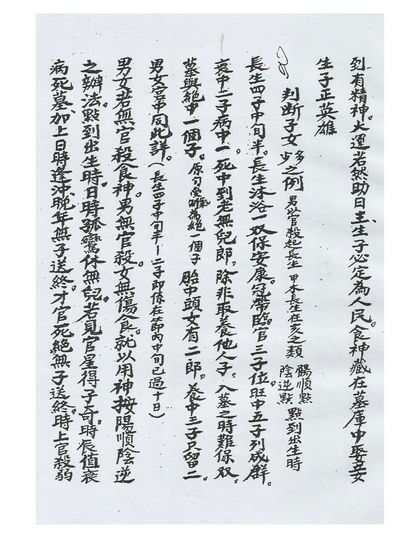 到有精神。大運若然助日主、生子必定為人民。食神藏在墓庫中娶妾女
生子正英雄
判断子女多少之例 男以官殺起長生 甲木長生在亥之類 陽順點 陰逆點 點到出生時
長生四子中旬半。長生沐浴一双保安康。冠帶臨官三子位。旺中五子列成群。
衰中二子病中一。死中到老無兒郎、除非取養他人子。入墓之時難保双、
墓與絕中一個子。 胎中頭女有二郎、養中三子只留二、
男女宮中同此詳。(長生四子中旬半—二子即係在節内中旬已過十日)
男女若無官殺食神、男無官殺、女無傷食、就以用神按陽順陰逆
之辦法。點到出生時。日時孤鸞休無兒。若見官星得子奇。時辰值衰
病死墓。加上日時逢沖。晚年無子送終。才官死絕無子送終。時上官殺的